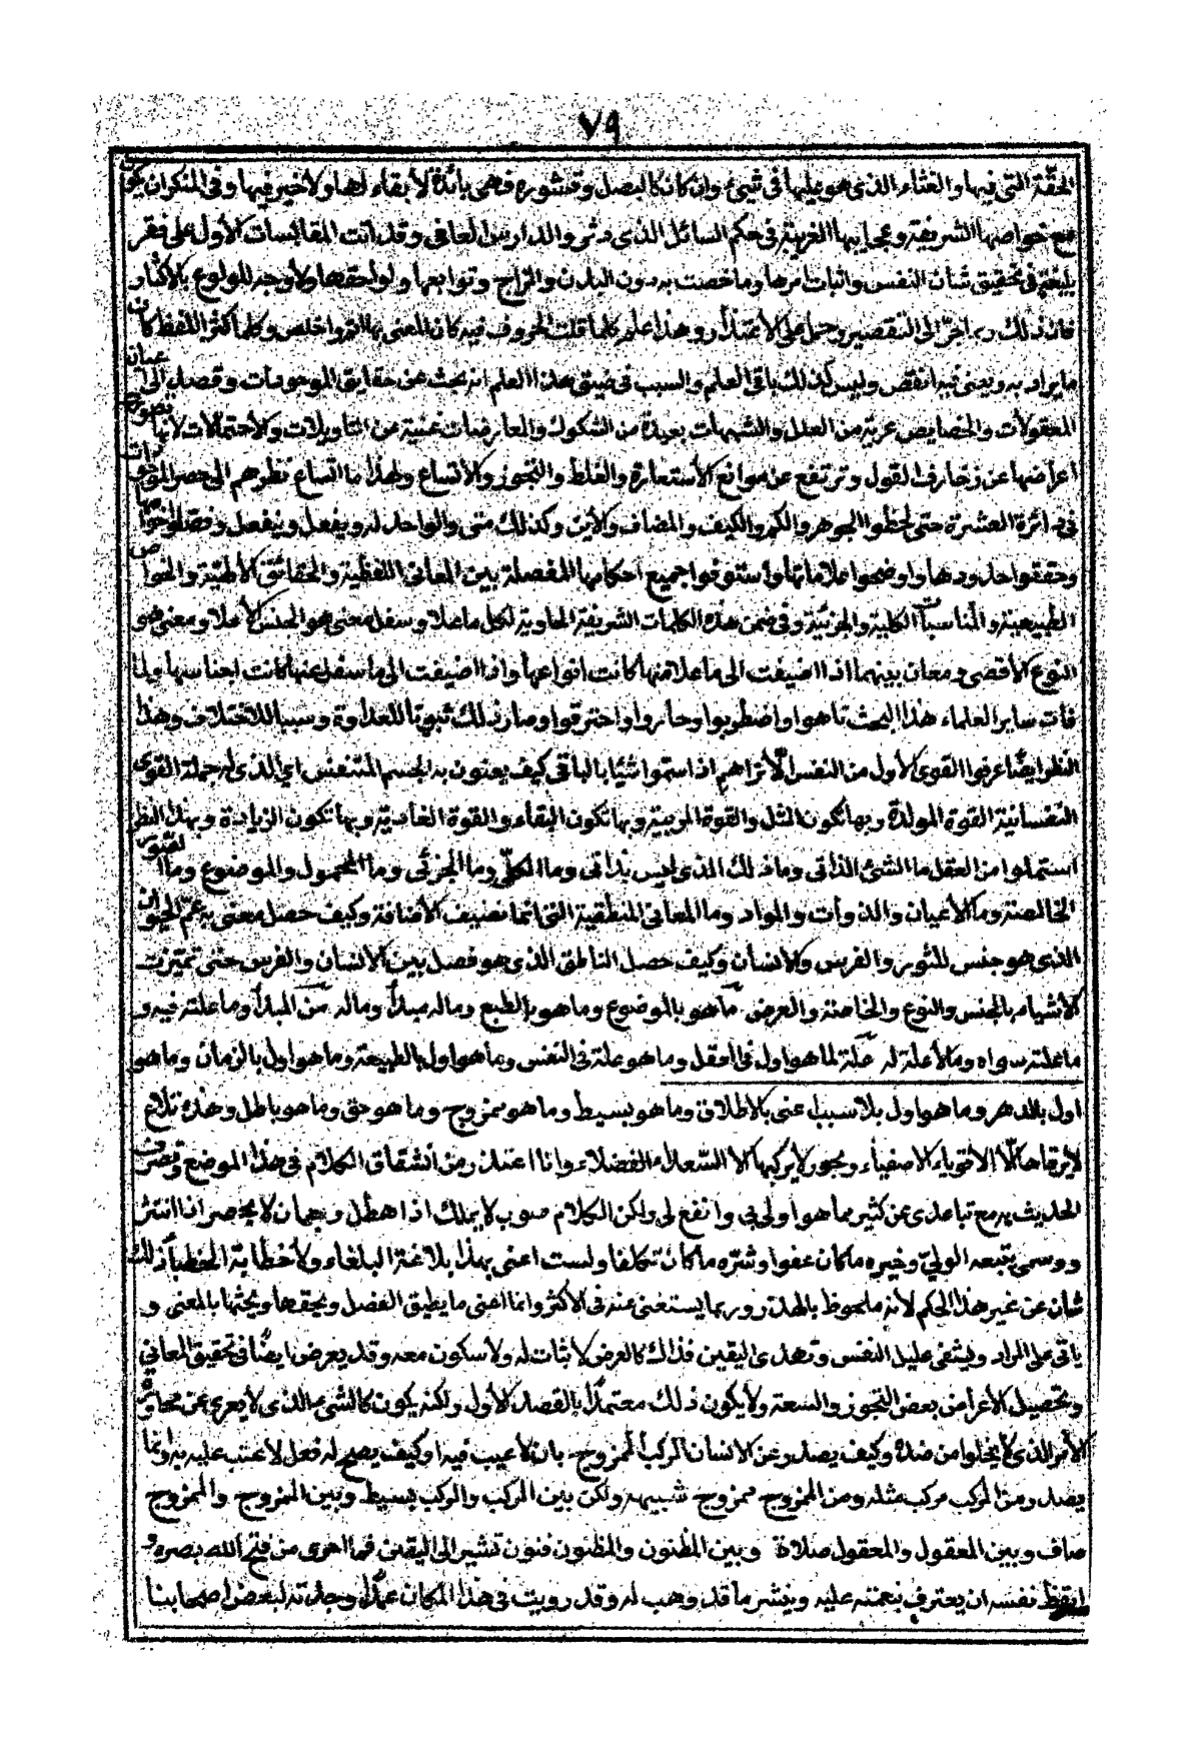 ٧٩
الحقّة التى فيها والغثاء الذى هو عليها فى شيئ وان كان كالبصل وقشوره فهى بائدة لا بقاء لها ولا خير فيها وفى المنكر ان يكون
مع خواصها الشريفة وعجايبها الغريبة فى حكم السائل الذى دثر والدارس العافى وقد اتت المقابسات الأول على فقر
بليغة فى تحقيق شأن النفس واثبات امرها وما خصت به دون البدن والمزاج وتوابعها ولواحقها ولا وجه للولوع بالأكثار
فان ذلك ربما جرّ الى التقصير وحمل على الاعتذار وهذا علم كلما قلت الحروف فيه كان المعنى بها اتم واخلص وكلما كثر اللفظ كان
ما يراد به ويعنى فيه انقص وليس كذلك باقى العلم والسبب فى ضيق هذا العلم انه بحث عن حقايق الموجودات وقصد الى اعيان
المعقولات والخصايص عرية من العلل والشبهات بعيدة من الشكوك والمعارضات غنية عن التاويلات والاحتمالات لانها تصون
اعراضها عن زخارف القول وترتفع عن مواقع الأستعارة والغلط والتجوز والأتساع ولهذا ما اتساع نظرهم الى حصر الموجودات
فى دائرة العشرة حتى لحظوا الجوهر والكم والكيف والمضاف والأين وكذلك متى والواحد له ويفعل وينفعل وفصلوا خواصها
وحققوا حدودها واوضحوا علاماتها واستوفوا جميع احكامها المفصلة بين المعانى اللفظية والحقائق الألهية والخواص
الطبيعية والمناسبات الكلية والجزئية وفى ضمن هذه الكلمات الشريفة الحاوية لكل ما علا وسفل معنى هو الجنس الأعلا ومعنى هو
النوع الأقصى ومعان بينهما اذا اضيفت الى ما علا منها كانت انواعها واذا اضيفت الى ما سفل عنها كانت اجناسها ولما
فات ساير العلماء هذا البحث تاهوا واضطربوا وحاروا واحترقوا وصار ذلك ثبوتا للعداوة وسببا للاختلاف وهذا
النظر ايضًا عرفوا القوى الأول من النفس ألا تراهم اذا سموا شيئا بالباقى كيف يعنون به الجسم المتنفس اي الذى له جملة القوى
النفسانية القوة المولدة وبها تكون المثل والقوة المربية وبها تكون البقاء والقوة الغاذية وبها تكون الزيادة وبهذا النظر
استملوا من العقل ما الشئ الذاتى وما ذلك الذى ليس بذاتى وما الكلّي وما الجزئى وما المحمول والموضوع وما
الخالصة وما الأعيان والذوات والمواد وما المعانى المنطقية التى انما تضيف الأضافة وكيف حصل معنى يعم الحيوان
الذى هو جنس للثور والفرس والانسان وكيف حصل الناطق الذى هو فصل بين الانسان والفرس حتى تميزت
الأشياء بالجنس والنوع والخاصة والعرض ما هو بالموضوع وما هو بالطبع وما له مبدأ وما له من المبدأ وما علته فيه و
ما علته سواه وما لا علة له علة لما هو اول فى العقل وما هو علة فى النفس وما هو اول بالطبيعة وما هو اول بالزمان وما هو
اول بالدهر وما هو اول بلا سبب اعنى بالاطلاق وما هو بسيط وما هو ممزوج وما هو حق وما هو باطل وهذه تلاع
لا يرقاها الّا الأقوياء الأصفياء وبحور لا يركبها الا السعداء الفضلاء وانا اعتذر من انشقاق الكلام فى هذا الموضع وتصرف
الحديث به مع تباعدى عن كثير مما هو اولى بى وانفع لى ولكن الكلام صوب لا يملك اذا هطل وجمان لا يحصر اذا انتثر
ووسمى يتبعه الولىّ وخيره ما كان عفوا وشرّه ما كان تكلفا ولست اعنى بهذا بلاغة البلغاء ولا خطابة الخطباء ذلك
شان عن غير هذا الحكم لأنه ملحوظ بالهذر وربما يستغنى عنه فى الأكثر وانما اعنى ما يطبق الفصل ويحقها ويحثها بالمعنى و
ياتى على المراد ويشفى غليل النفس وتهدى اليقين فذلك كالعرض لا ثبات له ولا سكون معه وقد يعرض ايضًا فى تحقيق المعانى
وتحصيل الأغراض بعض التجوز والسعة ولا يكون ذلك معتمدًا بالقصد الأول ولكنه يكون كالشئ الذى لا يعرى عن مجاوره
كالأمر الذى لا يخلوا من ضده وكيف يصدر عن الانسان المركب الممزوج بان لا عيب فيه او كيف يصح له فعل لا عتب عليه به وانما
يصدر من المركب مركب مثله ومن الممزوج ممزوج شبيهه ولكن بين المركب والمركب بسيط وبين الممزوج والممزوج
صاف وبين المعقول والمعقول صلاة وبين المظنون والمظنون فنون تشير الى اليقين فما احرى من فتح الله بصره و
ايقظ نفسه ان يعترف بنعمته عليه وينشر ما قد وهب له وقد رويت فى هذا المكان عمدا وجدته لبعض اصحابنا